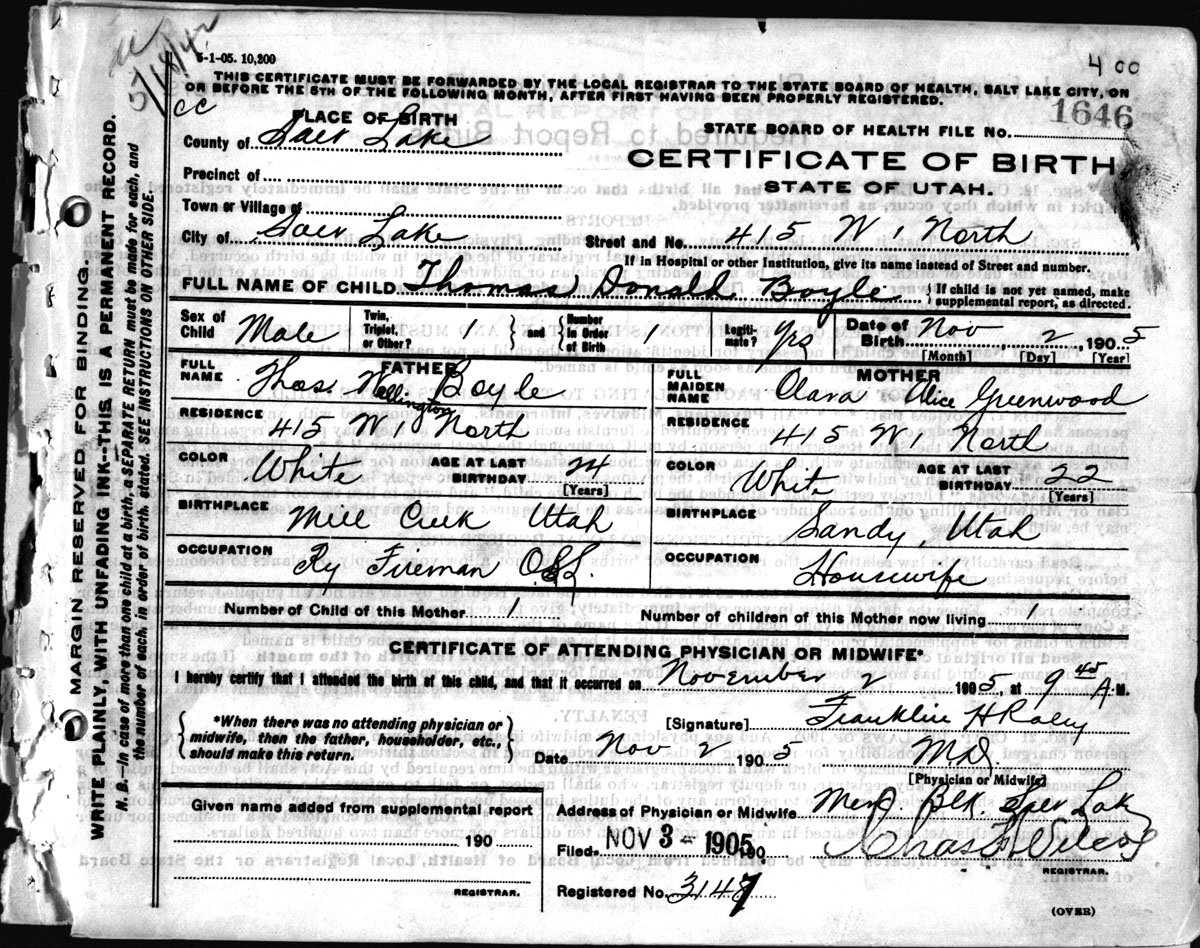 5-1-05. 10,200
4 00
5/18/42
CC
THIS CERTIFICATE MUST BE FORWARDED BY THE LOCAL REGISTRAR TO THE STATE BOARD OF HEALTH, SALT LAKE CITY, ON
OR BEFORE THE 5TH OF THE FOLLOWING MONTH, AFTER FIRST HAVING BEEN PROPERLY REGISTERED.
PLACE OF BIRTH
STATE BOARD OF HEALTH FILE NO. 1646
County of Salt Lake
CERTIFICATE OF BIRTH
Precinct of
STATE OF UTAH.
Town or Village of
City of Salt Lake
Street and No. 415 W 1 North
If in Hospital or other Institution, give its name instead of Street and number.
FULL NAME OF CHILD Thomas Donald Boyle { If child is not yet named, make supplemental report, as directed.
Sex of Child Male Twin, Triplet, or Other? 1 } and { Number in Order of Birth 1 Legiti-mate? Yes Date of Birth Nov 2, 1905
[Month] [Day] [Year]
FATHER
FULL NAME Thos Wellington Boyle
RESIDENCE 415 W 1 North
COLOR White AGE AT LAST BIRTHDAY 24
[Years]
BIRTHPLACE Mill Creek Utah
OCCUPATION Ry Fireman
MOTHER
FULL MAIDEN NAME Clara Alice Greenwood
RESIDENCE 415 W 1 North
COLOR White AGE AT LAST BIRTHDAY 22
[Years]
BIRTHPLACE Sandy, Utah
OCCUPATION Housewife
Number of Child of this Mother 1 Number of children of this Mother now living 1
CERTIFICATE OF ATTENDING PHYSICIAN OR MIDWIFE*
I hereby certify that I attended the birth of this child, and that it occurred on November 2 1905, at 9 45 A M.
{ *When there was no attending physician or
midwife, then the father, householder, etc.,
should make this return. }
[Signature] Franklin H Raley
Date Nov 2 1905 MD
[Physician or Midwife]
Given name added from supplemental report
190
REGISTRAR.
Address of Physician or Midwife Merc. Blk. Salt Lak
Filed NOV 3 - 1905 190 Chas F Wilcox
REGISTRAR.
Registered No. 3147
(OVER)
MARGIN RESERVED FOR BINDING.
WRITE PLAINLY, WITH UNFADING INK--THIS IS A PERMANENT RECORD.
N. B.--In case of more than one child at a birth, a SEPARATE RETURN must be made for each, and
the number of each, in order of birth, stated. SEE INSTRUCTIONS ON OTHER SIDE.